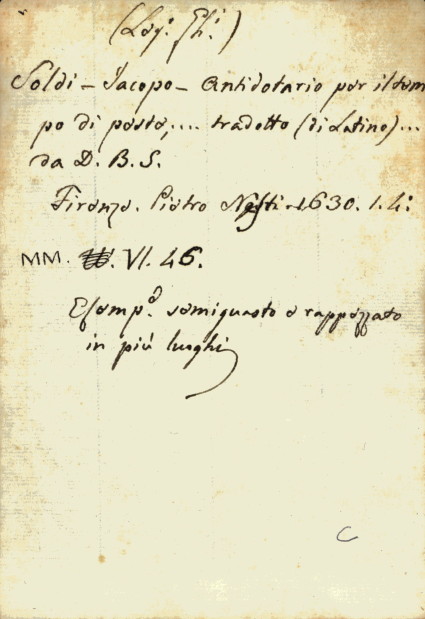 (Leg: Gh:)
Soldi – Jacopo – Antidotario per il tem
po di peste, .... tradotto (di Latino) ...
da D. B. S.
Firenze. Pietro Nesti 1630. 1. 4:
MM. VI. 46.
Esempº. semiguasto e rappezzato
in più luoghi
C